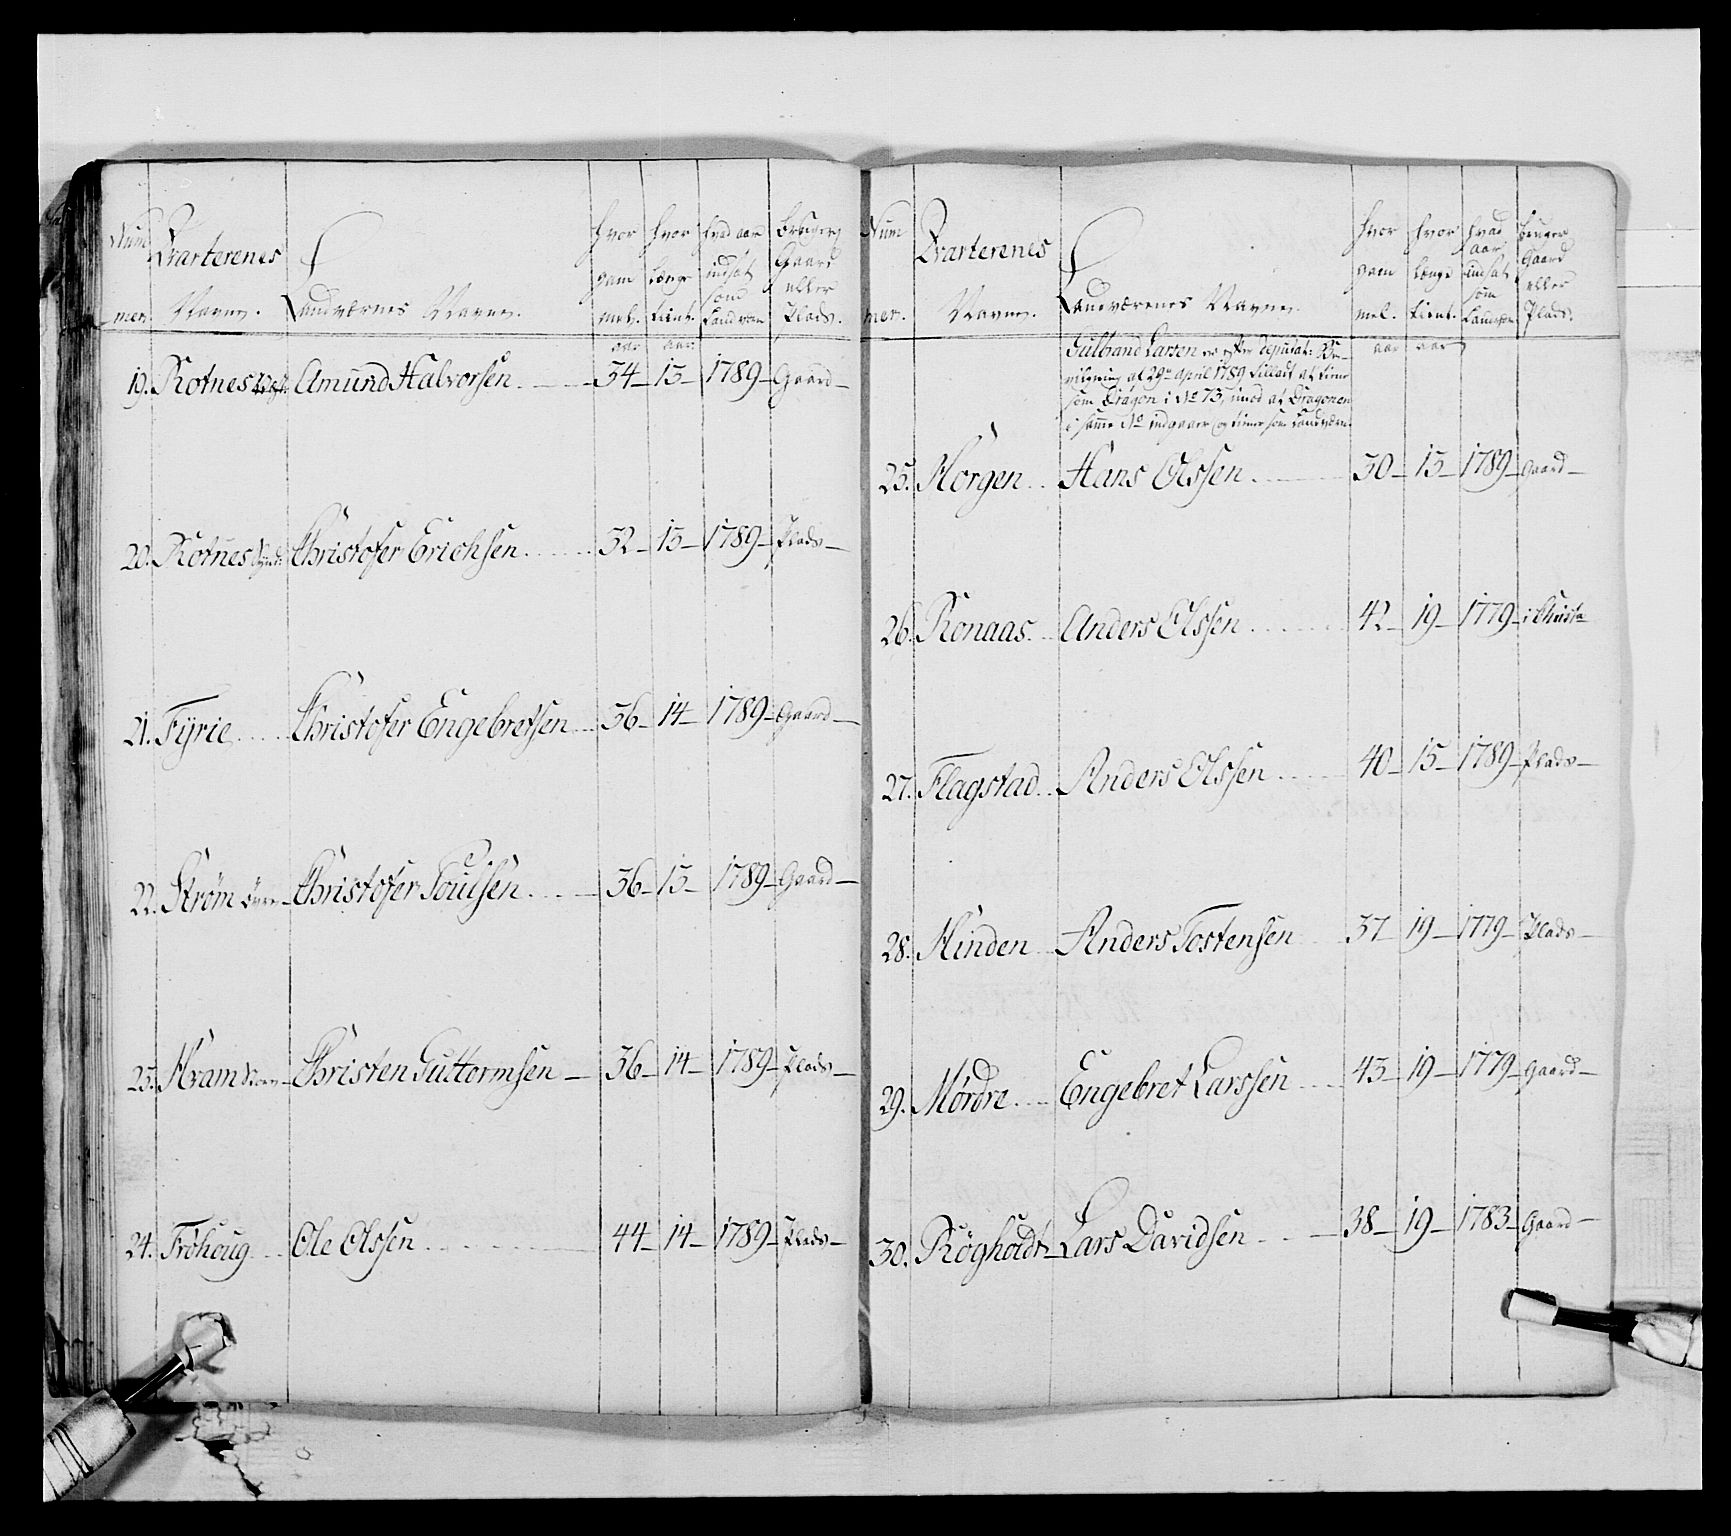 Num
mer.
Qvarterenes
Navne.
Landværnes Navne.
hvor
gam
mel.
hvor
længe
tient.
hvad aar
indsat
som
Landværn
bruger
Gaard
eller
Plads.
aar aar
19. Rotnes Amund Halvorsen. 34 – 13 – 1789 – Gaard –
20. Rotnes Christofer Erichsen 32 – 13 – 1789 – Plads –
21. Fÿrie Christofer Engebretsen 36 – 14 – 1789 – Gaard –
22. Strøm øvre Christofer Poulsen 36 – 13 – 1789 – Gaard –
23. Hvam Christen Guttormsen – 36 – 14 – 1789 – Plads –
24. Frøhoug Ole Olssen 44 – 14 – 1789 – Plads –
Num
mer.
Qvarterenes
Navne.
Landværenes Navne.
hvor
gam
mel.
hvor
længe
tient.
hvad
aar
indsat
som
Landværn
bruger
Gaard
eller
Plads.
aar aar
Gulbrand Larsen er efter deputat: Be-
vilgning af 29de April 1789 tilladt at tiene
som Dragon i No 73, imod at Dragonen
i samme No indgaaer og tiener som Landværn.
25. Horgen Hans Olssen 30 – 13 – 1789 – Gaard –
26. Ronaas Anders Olssen 42 – 19 – 1779 – i Christa
27. Flagstad Anders Olssen 40 – 15 – 1789 – Plads –
28. Hinden Anders Tostensen 37 – 19 – 1779 – Plads –
29. Mørdre Engebret Larssen 43 – 19 – 1779 – Gaard –
30. Røgholdt Lars Davidsen 38 – 19 – 1783 – Gaard –